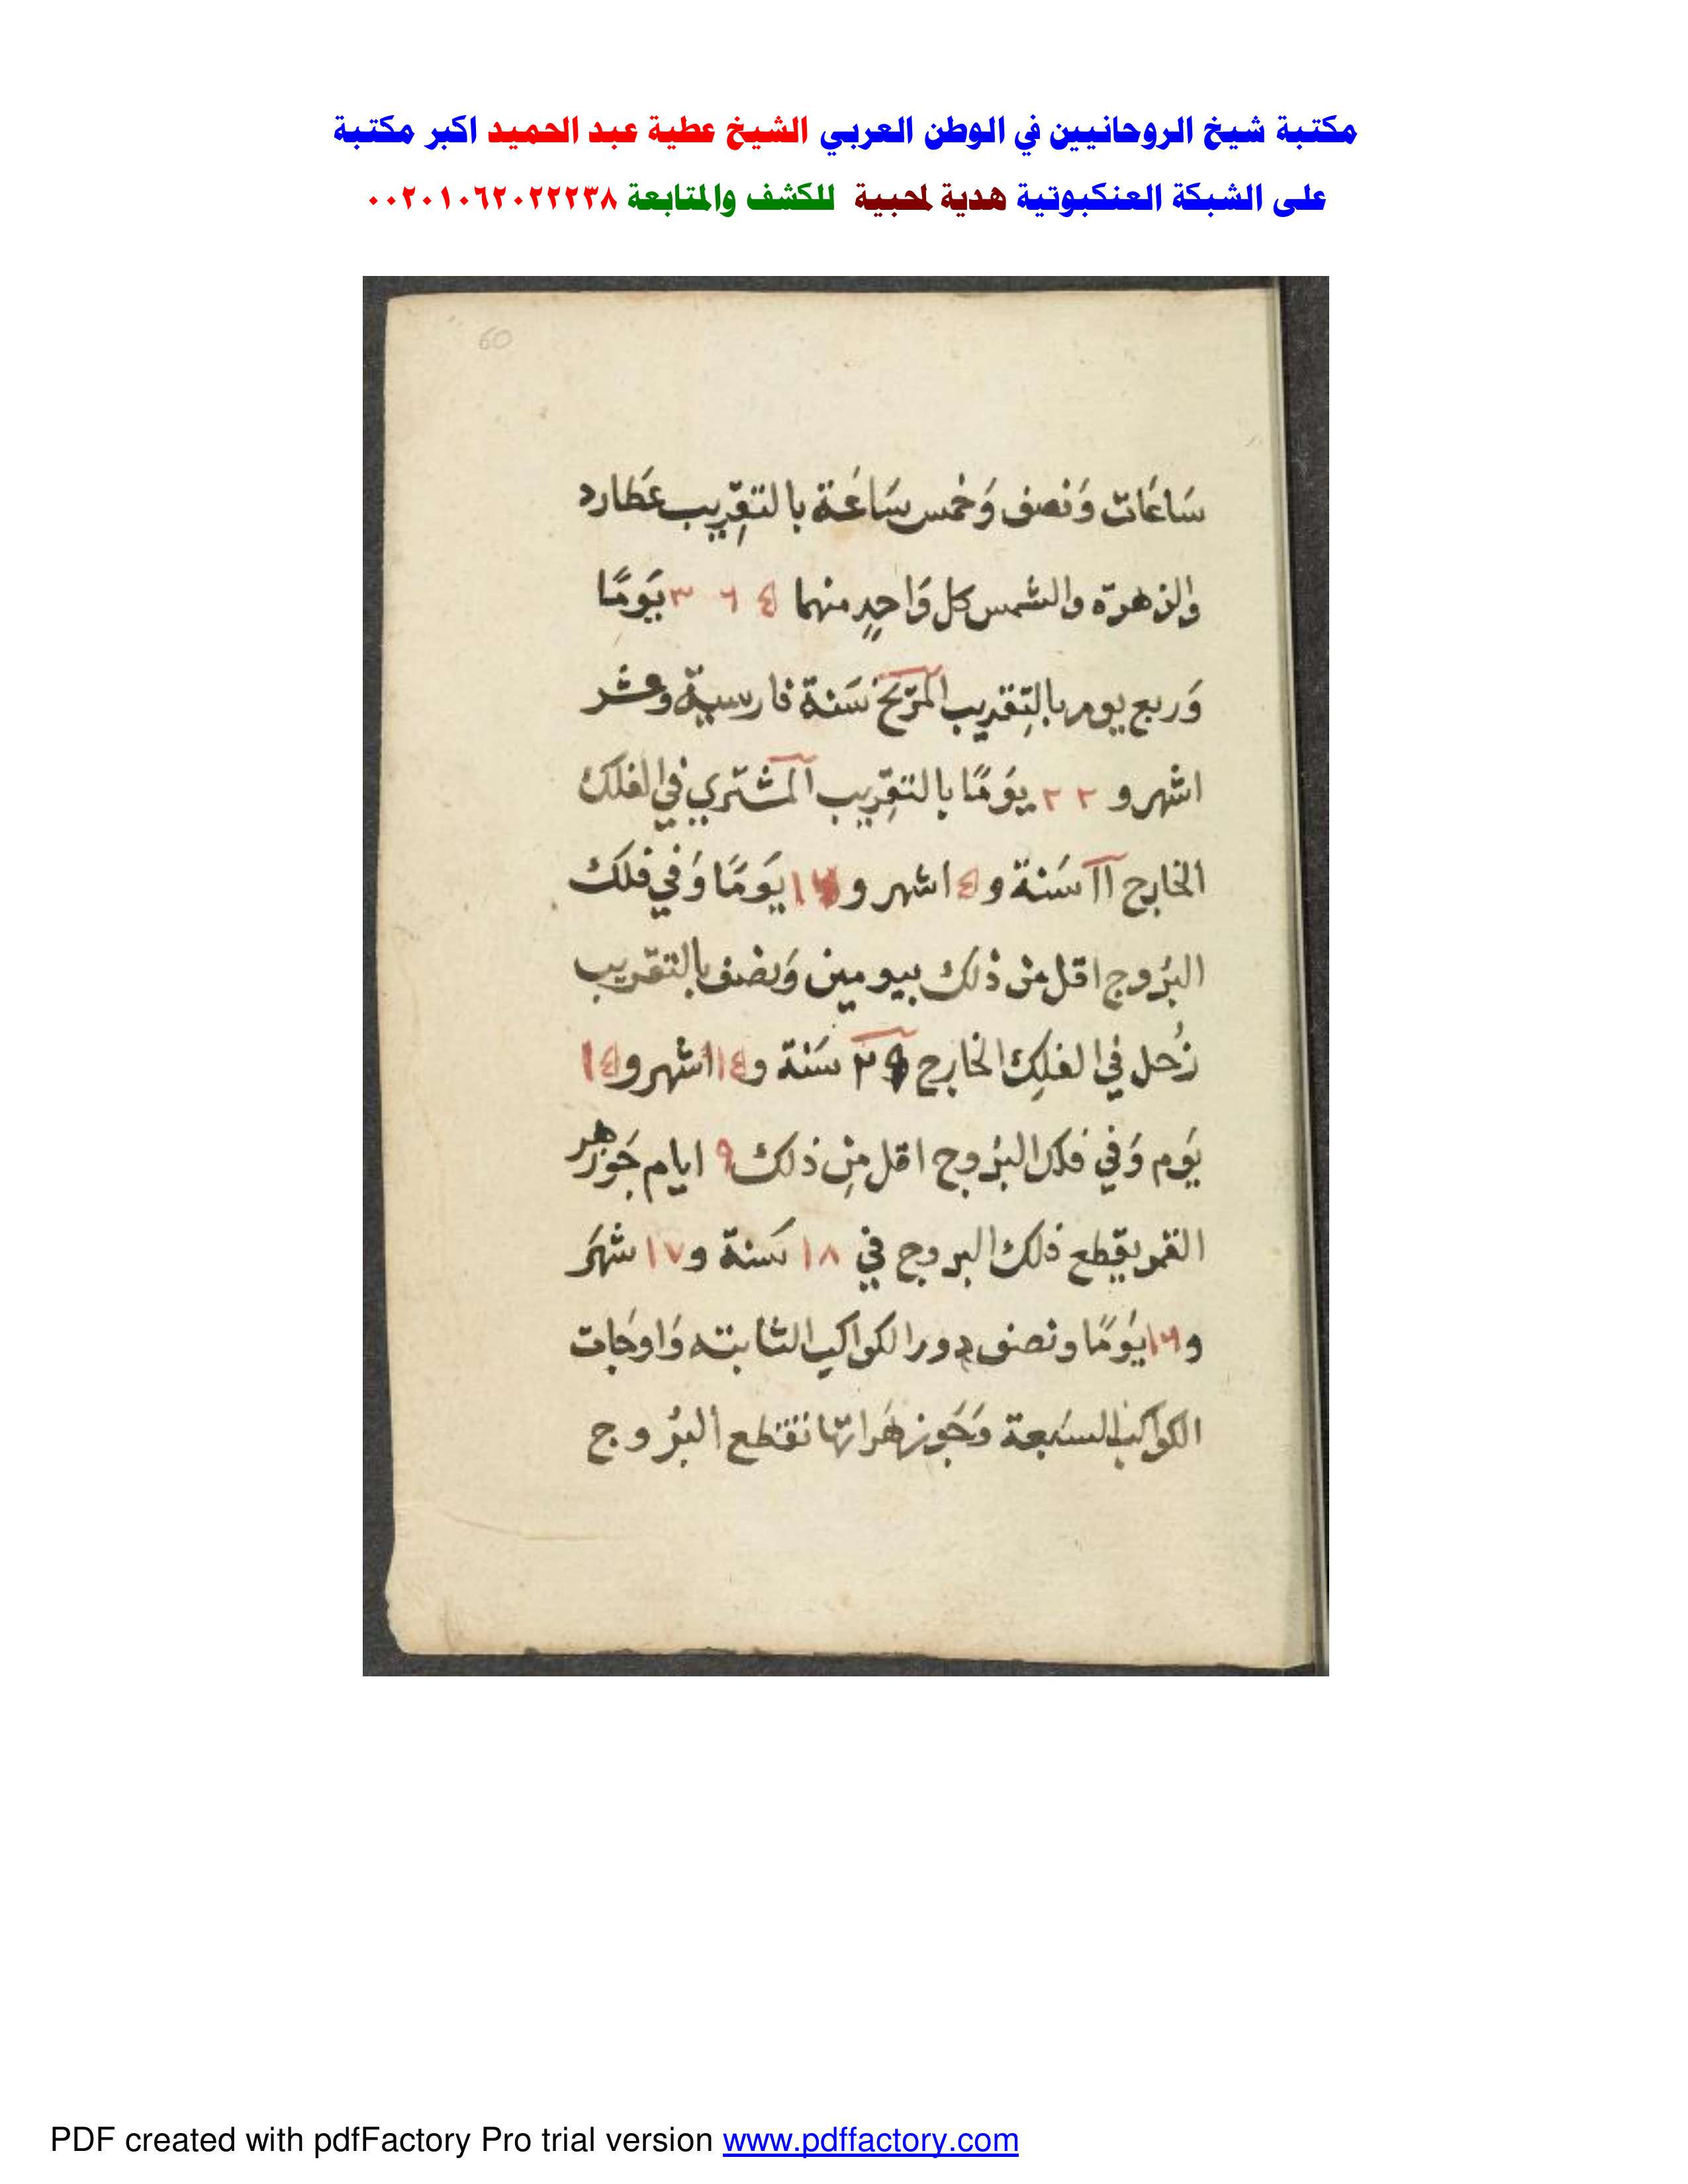 مكتبة شيخ الروحانيين في الوطن العربي الشيخ عطية عبد الحميد اكبر مكتبة
على الشبكة العنكبوتية هدية لمحبية للكشف والمتابعة ٠٠٢٠١٠٦٢٠٢٢٢٣٨
60
سَاعَات وَنصف وَخمس سَاعَة بالتقرِيب عَطارد
والزهرة والشمس كل وَاحِدٍ منهما ٤ ٦ ٣ يَومًا
وَربع يوم بالتِقرِيب المرّيخ سَنة فارسية وعشر
اشهر و ٢٢ يَومًا بالتقرِيب المشتري في الفلك
الخارج ١١ سَنة و٤ اشهر و يَومًا وَفي فلك
البرُوج اقل من ذلك بيومين وَنصف بالتقريب
زُحل في الفلِك الخارج ٢٩ سَنة و١٤ اشهر و١٤
يَوم وَفي فلك البرُوج اقل مِن ذلك ٩ ايام جَوزهر
القمر يقطع فلك البروج في ١٨ سَنة و١٧ شهَر
و يَومًا ونصف دور الكواكب الثابته وَاوجَات
الكواكب السَبعة وَجَوزهَراتها تقطع البرُوج
PDF created with pdfFactory Pro trial version www.pdffactory.com